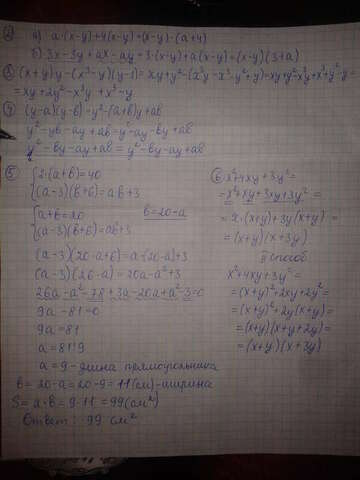 ② а) a·(x-y)+4(x-y)=(x-y)·(a+4)
б) 3x-3y+ax-ay=3·(x-y)+a(x-y)=(x-y)(3+a)
③ (x+y)y-(x³-y)(y-1)=xy+y²-(x³y-x³-y²+y)=xy+y²-x³y+x³+y²-y=
=xy+2y²-x³y+x³-y.
④ (y-a)(y-b)=y²-(a+b)y+ab
y²-yb-ay+ab=y²-ay-by+ab
y²-by-ay+ab=y²-by-ay+ab
⑤ {2·(a+b)=40
{(a-3)(b+6)=ab+3
{a+b=20 b=20-a
{(a-3)(b+6)=ab+3
(a-3)(20-a+6)=a·(20-a)+3
(a-3)(26-a)=20a-a²+3
26a-a²-78+3a-20a+a²-3=0
9a-81=0
9a=81
a=81:9
a=9-длина прямоугольника
b=20-a=20-9=11(см)-ширина
S=a·b=9·11=99(см²)
Ответ: 99 см²
⑥ x²+4xy+3y²=
=x²+xy+3xy+3y²=
=x·(x+y)+3y(x+y)=
=(x+y)(x+3y)
II способ
x²+4xy+3y²=
=(x+y)²+2xy+2y²=
=(x+y)²+2y(x+y)=
=(x+y)(x+y+2y)=
=(x+y)(x+3y)